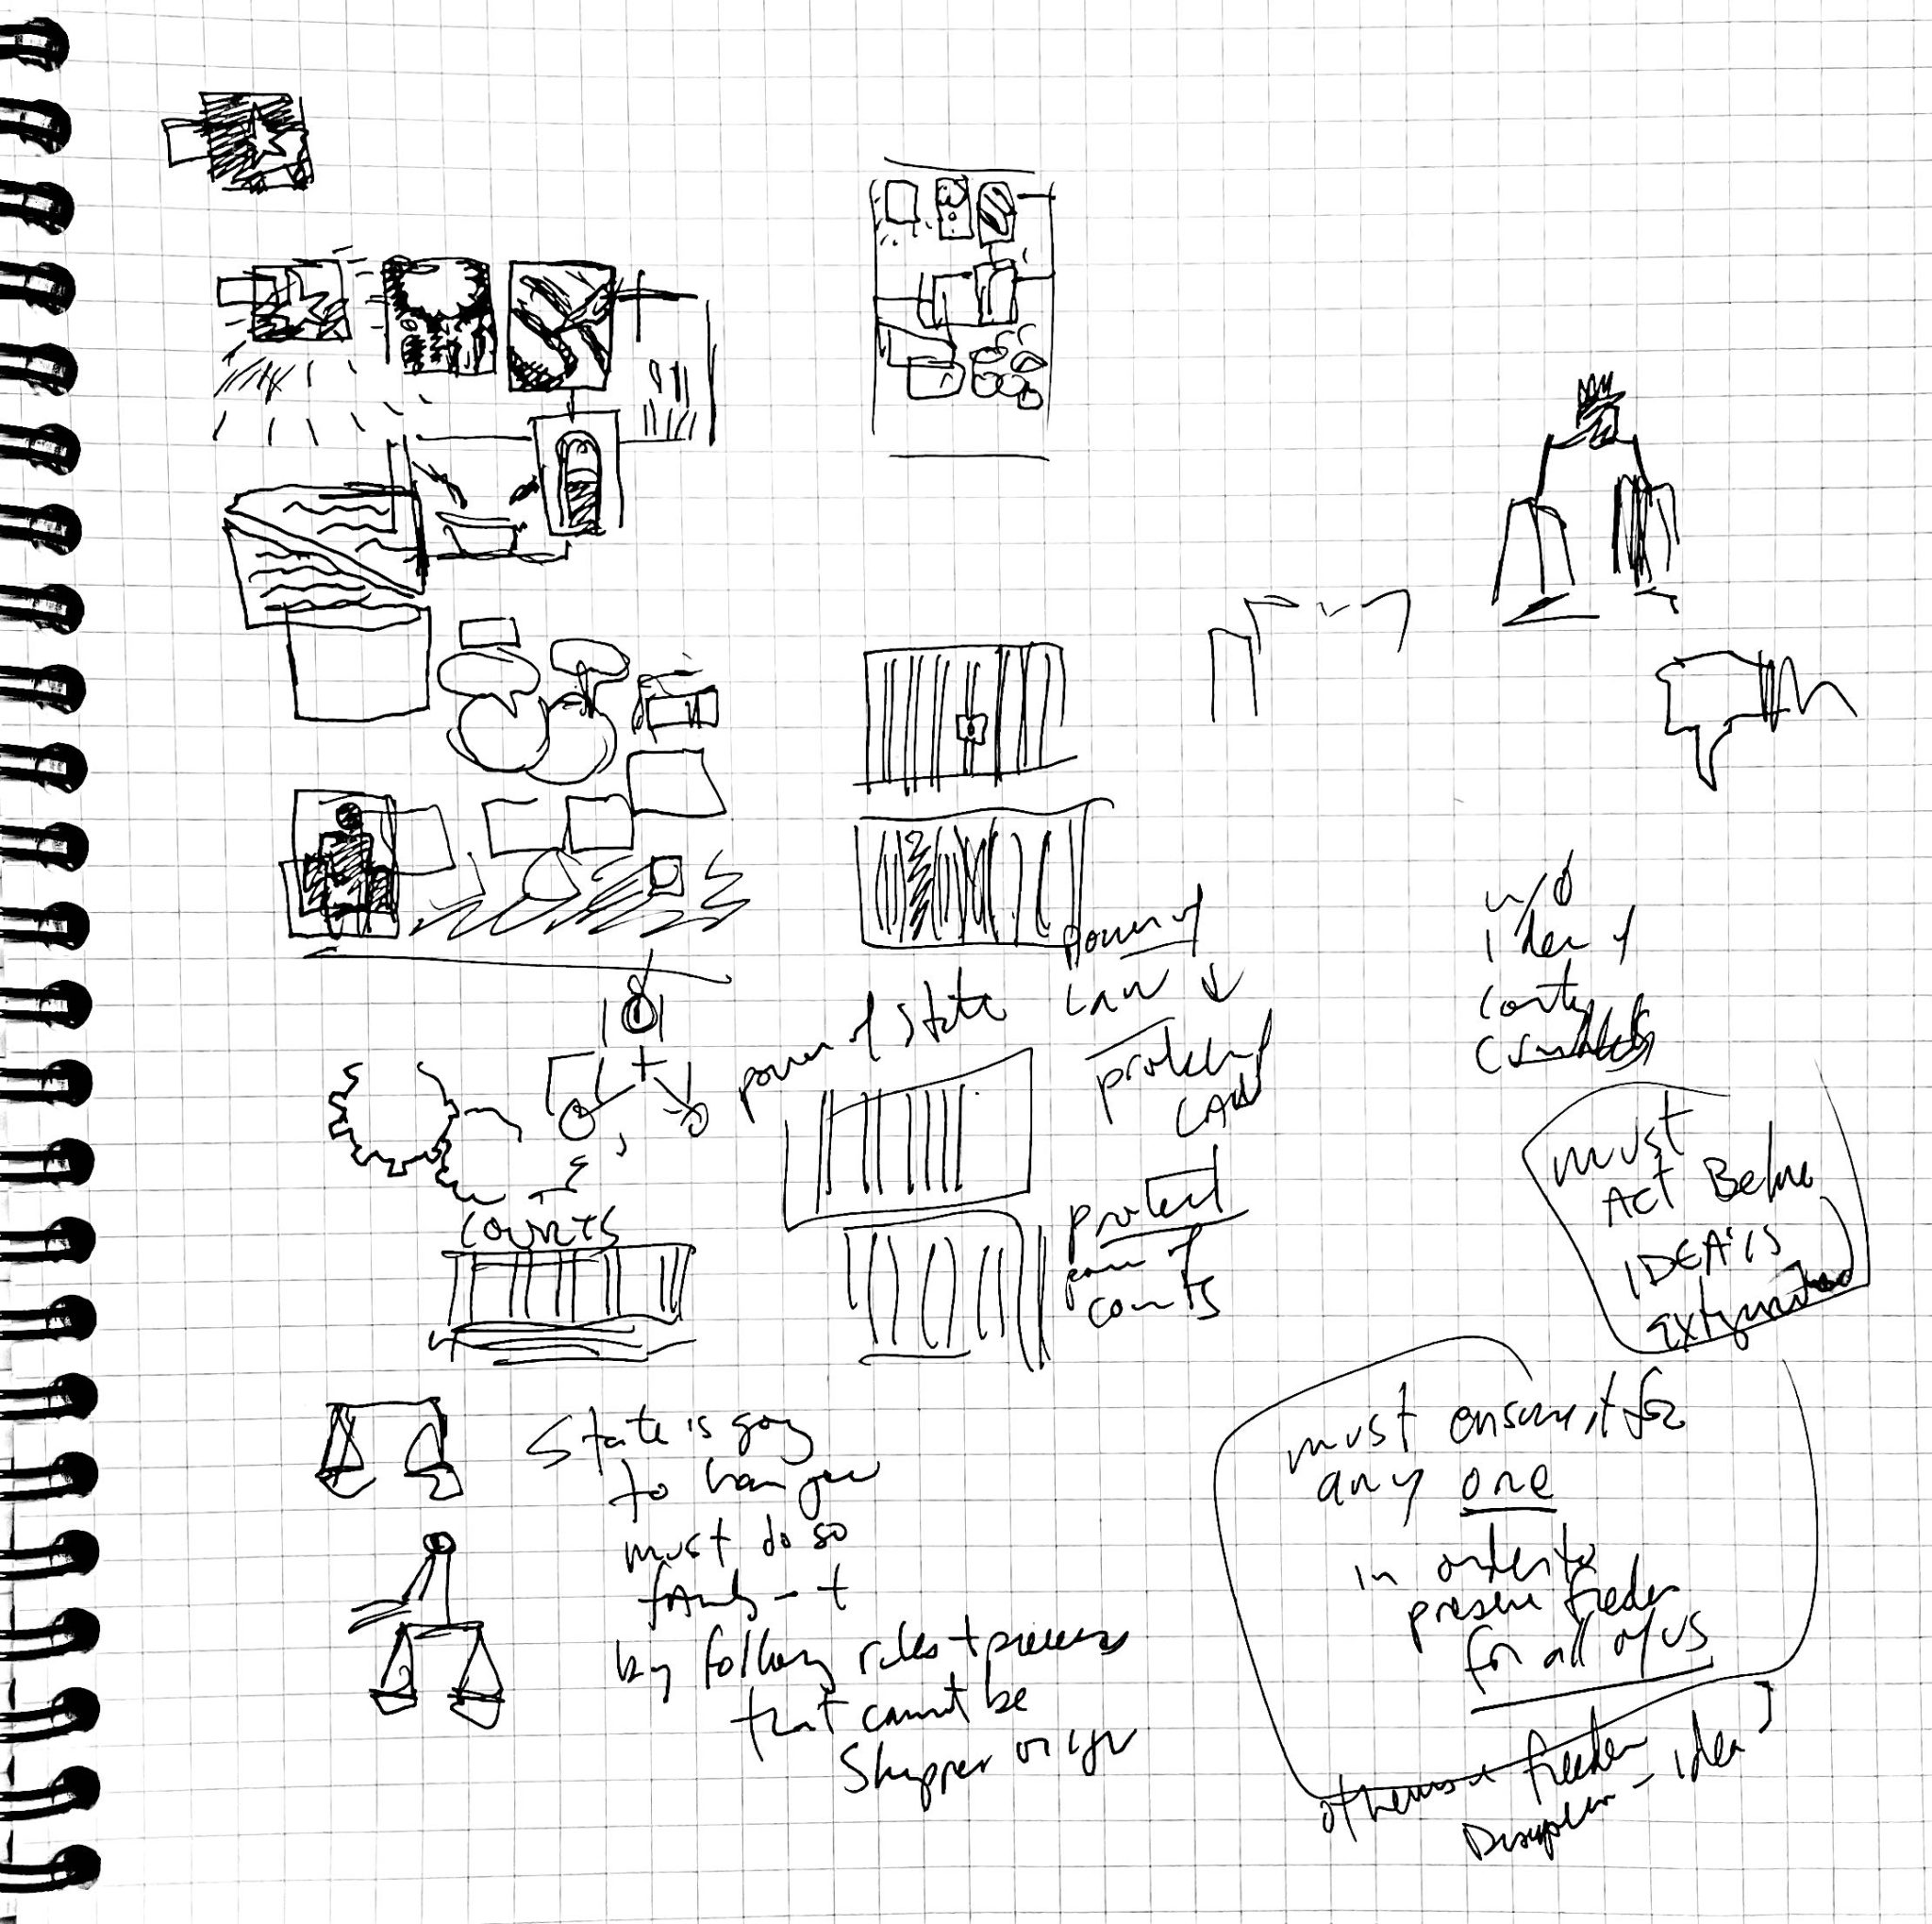 power of
LAW ↓
power of state
problem of
LAW
COURTS
protect
power of
courts
w/o
idea of
must
ACT Before
IDEA is
extinguished
State is going
to
must do so
by following rules + process
that cannot be
must ensure it for
any one
in order to
preserve freedom
for all of us
otherwise freedom
idea